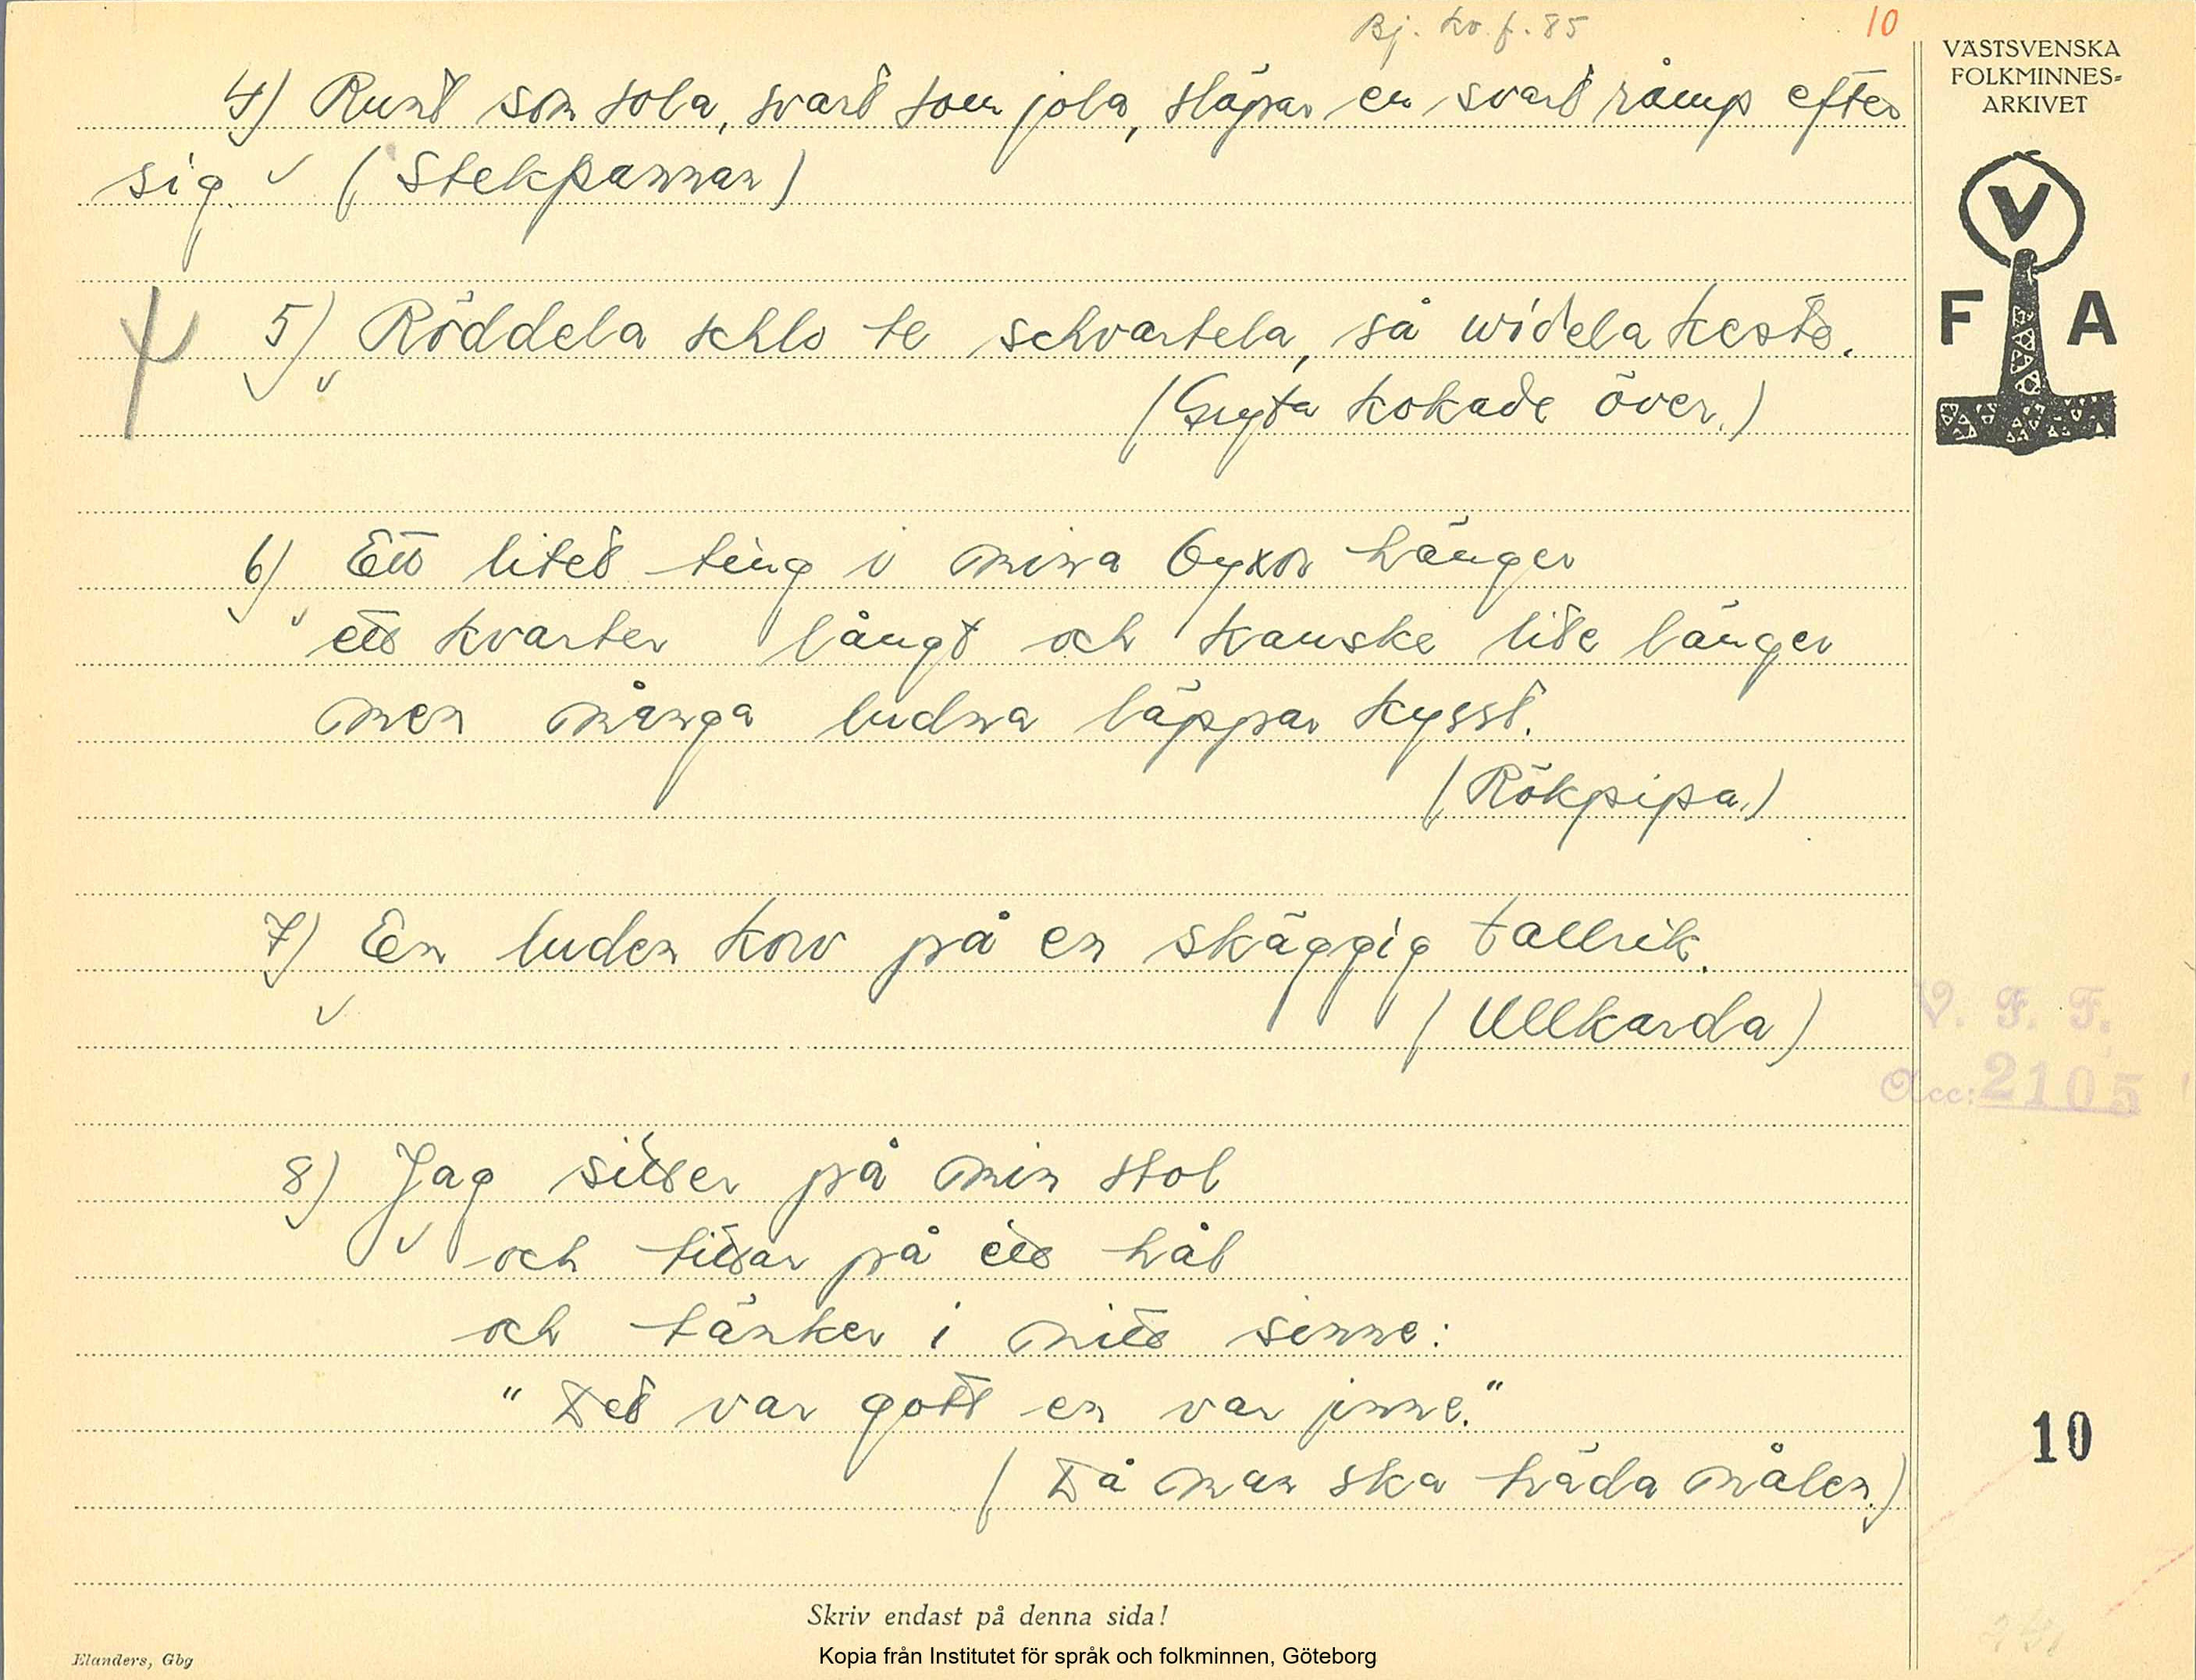 Bj. hd. f. 85
10
VÄSTSVENSKA
FOLKMINNES-
ARKIVET
4) Runt som sola, svart som jola, släpar en svart råmp efter
sig. (Stekpannan)
V
F A
5) Röddela schlo te schvartela, så widela keste.
(Gryta kokade över.)
6) Ett litet ting i mina byxor hänger
ett kvarter långt och kanske lite länger
men många ludna läppar kysst.
(Rökpipa.)
7) En luden korv på en skäggig tallrik.
(Ullkarda)
V. F. F.
Acc: 2105
8) Jag sitter på min stol
och tittar på ett hål
och tänker i mitt sinne:
"Det var gott en var inne."
10
(Då man ska träda nålen.)
Skriv endast på denna sida!
Elanders, Gbg
Kopia från Institutet för språk och folkminnen, Göteborg